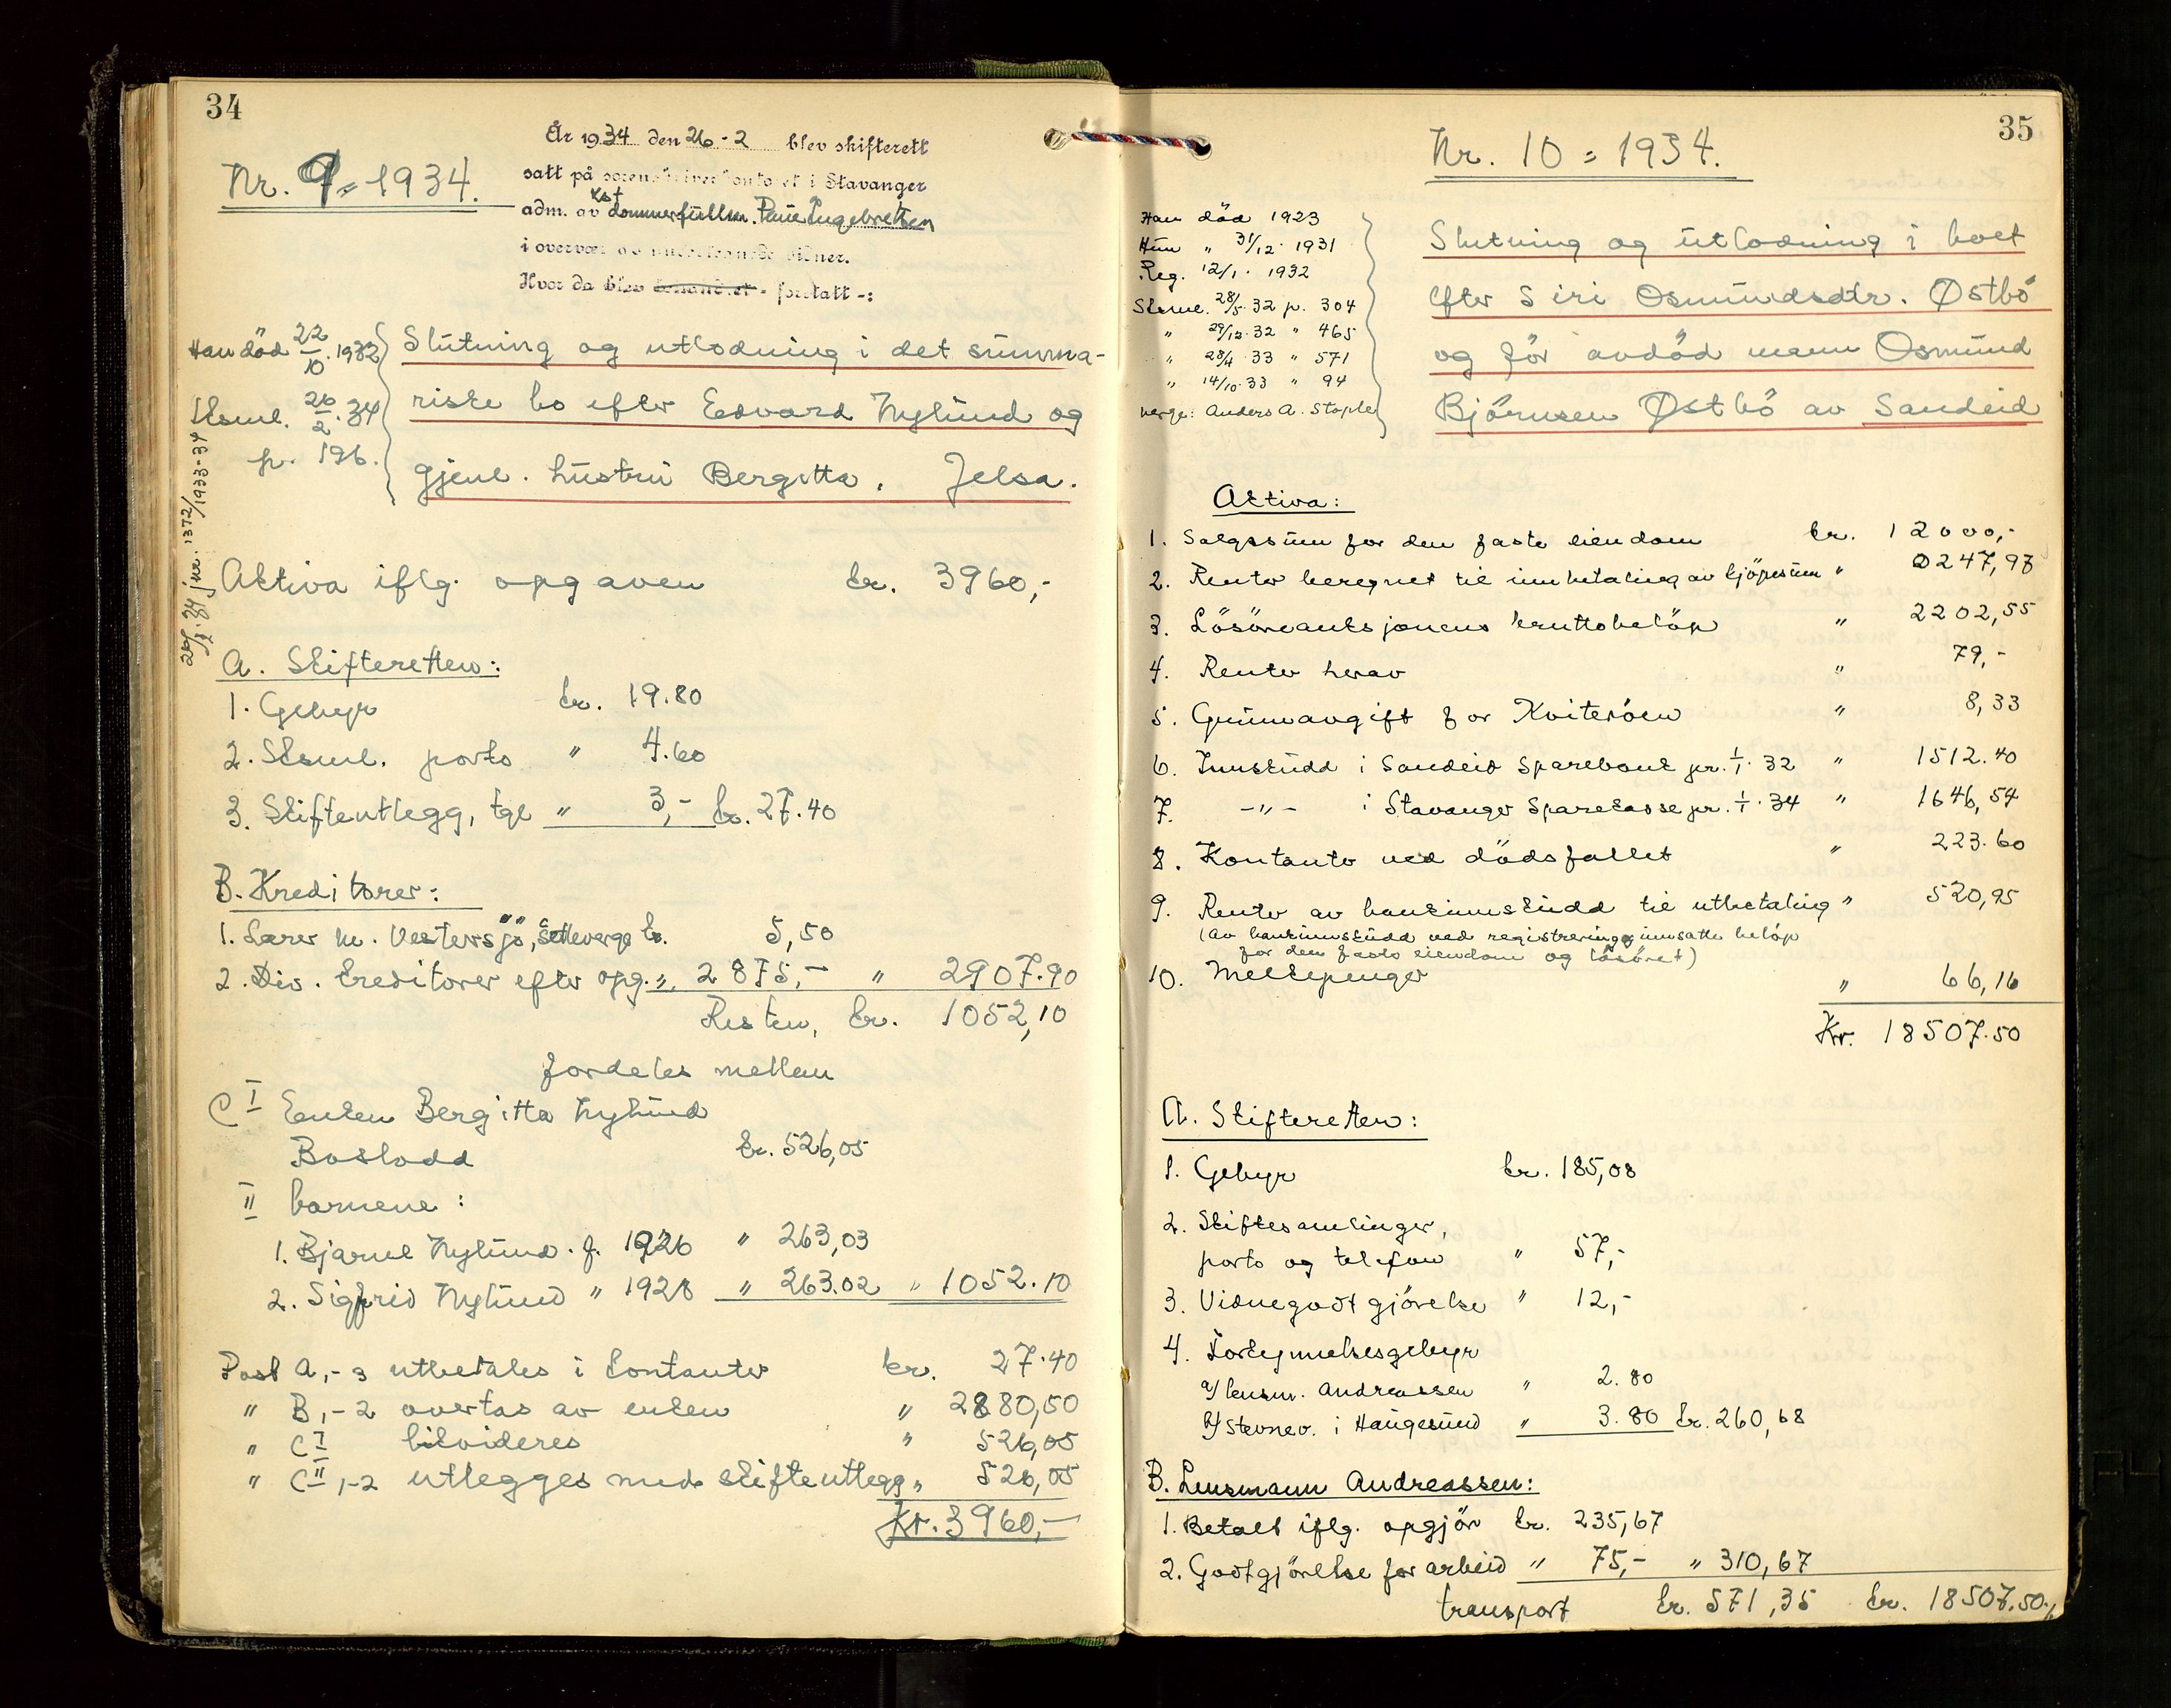 34
Nr. 9 = 1934.
År 1934 den 26-2 blev skifterett
satt på sorenskriverkontoret i Stavanger
adm. av kst dommerfullm. Paul Ingebretsen
i overvær av undertegnede vidner.
Hvor da blev behandlet - foretatt -:
Han död 22/10. 1932
Sksml. 26/2. 34
p. 196.
jnr. 1372/1933-34
Slutning og utlodning i det summa-
riske bo efter Edvard Nylund og
gjenl. hustru Bergitta, Jelsa.
Aktiva iflg. opgaven kr. 3960,-
A. Skifteretten:
1. Gebyr kr. 19.80
2. Sksml. porto " 4.60
3. Skifteutlegg, tgl " 3,- kr. 27.40
B. Kreditorer:
1. Lærer M. Vestersjö, setteverge kr. 5,50
2. Div. kreditorer efter opg. " 2875,- " 2907.90
Resten, kr. 1052,10
fordeles mellem
C I Enken Bergitta Nylund
Boslodd kr. 526,05
II barnene:
1. Bjarne Nylund. f. 1926 " 263,03
2. Sigfrid Nylund " 1928 " 263.02 " 1052.10
Post A,-3 utbetales i kontanter kr. 27.40
" B,-2 overtas av enken " 2880,50
" C I likvideres " 526,05
" C II,-2 utlegges med skifteutlegg " 526,05
Kr. 3960,-
35
Nr. 10 = 1934.
Han död 1923
Hun " 31/12. 1931
Reg. 12/1. 1932
Sksml. 28/5. 32 p. 304
" 29/12. 32 " 465
" 28/4. 33 " 571
" 14/10. 33 " 94
verge: Anders A. Stople
Slutning og utlodning i boet
efter Siri Osmundsdtr. Østbö
og för avdöd mann Osmund
Björnsen Østbö av Sandeid
Aktiva:
1. Salgssum for den faste eiendom kr. 12000,-
2. Renter beregnet til innbetaling av kjöpesum " 247,97
3. Lösöreauksjonens bruttobelöp " 2202,55
4. Renter herav " 79,-
5. Grunnavgift for Kviteröen " 8,33
6. Innskudd i Sandeid Sparebank pr. 1/1. 32 " 1512.40
7. -"- i Stavanger Sparekasse pr. 1/1. 34 " 1646,54
8. Kontanter ved dödsfallet " 223.60
9. Renter av bankinnskudd til utbetaling " 520,95
(av bankinnskudd ved registrering og innsatte belöp
for den faste eiendom og lösöret)
10. Melkepenger " 66,16
Kr. 18507.50
A. Skifteretten:
1. Gebyr kr. 185,08
2. Skiftesamlinger,
porto og telefon " 57,-
3. Vidnegodtgjörelse " 12,-
4. Forkynnelsesgebyr
a/ lensm. Andreassen " 2.80
b/ Stevnev. i Haugesund " 3.80 kr. 260,68
B. Lensmann Andreassen:
1. Betalt iflg. opgjör kr. 235,67
2. Godtgjörelse for arbeid " 75,- " 310,67
transport kr. 571,35 kr. 18507.50